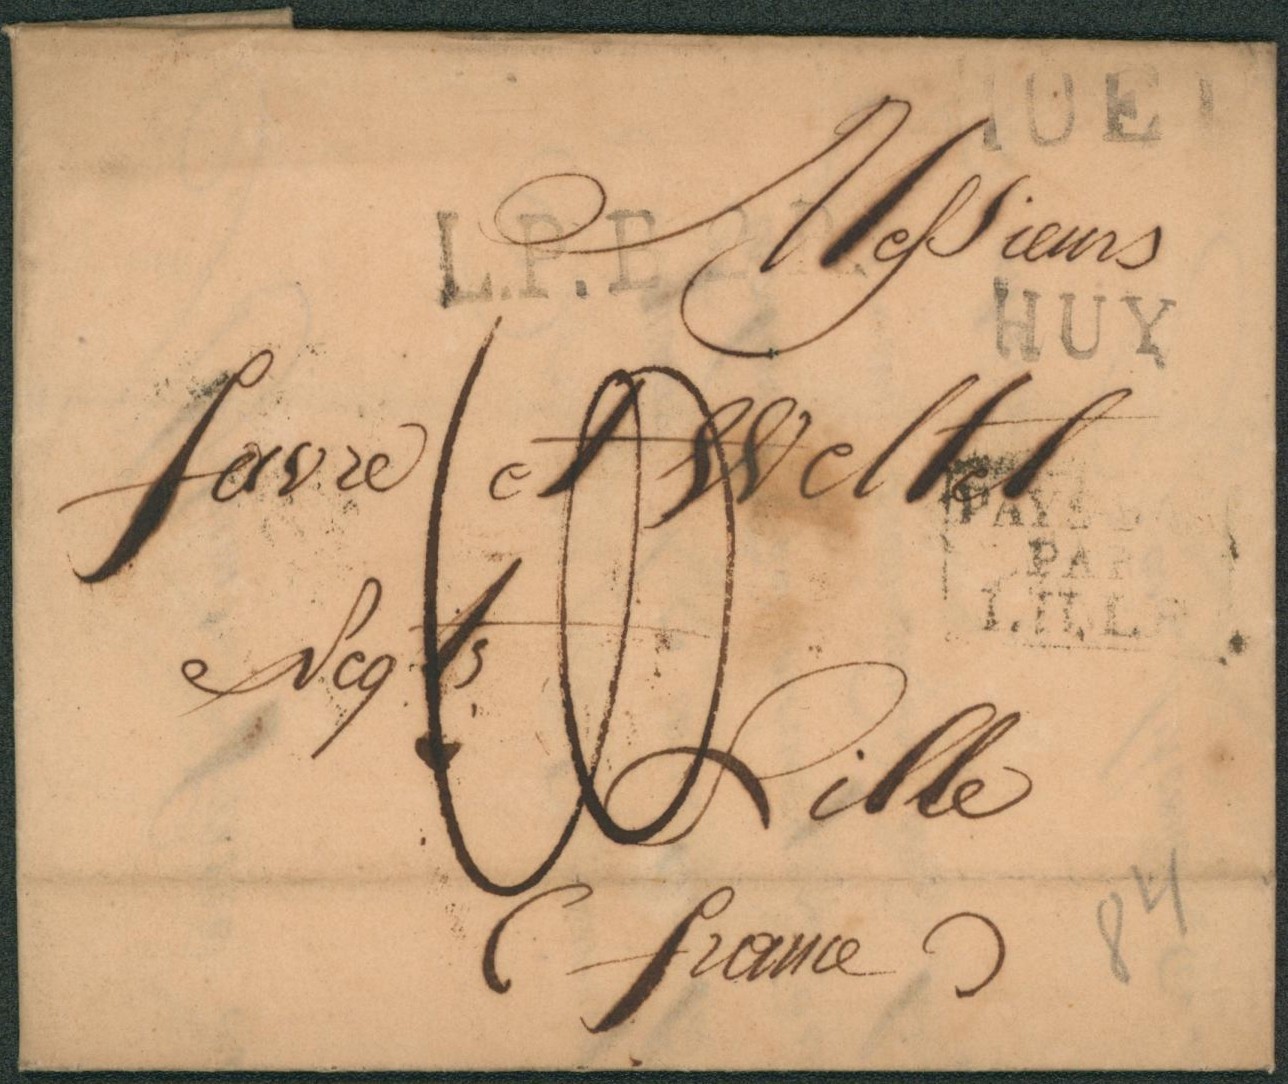 L.P.B.2.R.
Messieurs
HUY
favre et Weltet
PAYS-BAS
PAR
LILLE
Negts
60
Lille
(france)
84